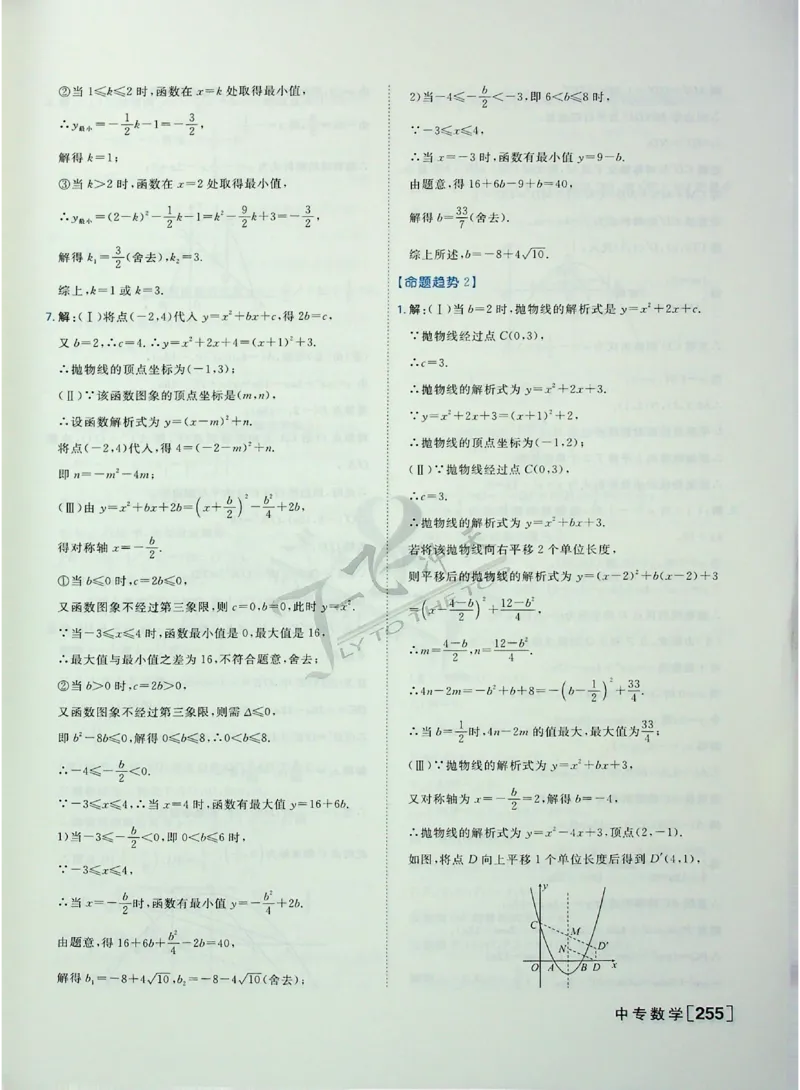 ②当 1≤k≤2 时,函数在 x=k 处取得最小值,
∴y最小=-1/2k-1=-3/2,
解得 k=1;
③当 k>2 时,函数在 x=2 处取得最小值,
∴y最小=(2-k)²-1/2k-1=k²-9/2k+3=-3/2,
解得 k₁=3/2(舍去),k₂=3.
综上,k=1 或 k=3.
7.解:(Ⅰ)将点(-2,4)代入 y=x²+bx+c,得 2b=c,
又 b=2,∴c=4.∴y=x²+2x+4=(x+1)²+3.
∴抛物线的顶点坐标为(-1,3);
(Ⅱ)∵该函数图象的顶点坐标是(m,n),
∴设函数解析式为 y=(x-m)²+n.
将点(-2,4)代入,得 4=(-2-m)²+n.
即 n=-m²-4m;
(Ⅲ)由 y=x²+bx+2b=(x+b/2)²-b²/4+2b,
得对称轴 x=-b/2.
①当 b≤0 时,c=2b≤0,
又函数图象不经过第三象限,则 c=0,b=0,此时 y=x².
∵当-3≤x≤4 时,函数最小值是 0,最大值是 16,
∴最大值与最小值之差为 16,不符合题意,舍去;
②当 b>0 时,c=2b>0,
又函数图象不经过第三象限,则需 Δ≤0,
即 b²-8b≤0,解得 0≤b≤8,∴0<b≤8.
∴-4≤-b/2<0.
∵-3≤x≤4,∴当 x=4 时,函数有最大值 y=16+6b.
1)当-3≤-b/2<0,即 0<b≤6 时,
∵-3≤x≤4,
∴当 x=-b/2时,函数有最小值 y=-b²/4+2b.
由题意,得 16+6b+b²/4-2b=40,
解得 b₁=-8+4√10,b₂=-8-4√10(舍去);
2)当-4≤-b/2<-3,即 6<b≤8 时,
∵-3≤x≤4,
∴当 x=-3 时,函数有最小值 y=9-b.
由题意,得 16+6b-9+b=40,
解得 b=33/7(舍去).
综上所述,b=-8+4√10.
【命题趋势 2】
1.解:(Ⅰ)当 b=2 时,抛物线的解析式是 y=x²+2x+c.
∵抛物线经过点 C(0,3),
∴c=3.
∴抛物线的解析式为 y=x²+2x+3.
∵y=x²+2x+3=(x+1)²+2,
∴抛物线的顶点坐标为(-1,2);
(Ⅱ)∵抛物线经过点 C(0,3),
∴c=3.
∴抛物线的解析式为 y=x²+bx+3.
若将该抛物线向右平移 2 个单位长度,
则平移后的抛物线的解析式为 y=(x-2)²+b(x-2)+3
=(x-(4-b)/2)²+(12-b²)/4,
∴m=(4-b)/2,n=(12-b²)/4.
∴4n-2m=-b²+b+8=-(b-1/2)²+33/4.
∴当 b=1/2时,4n-2m 的值最大,最大值为33/4;
(Ⅲ)∵抛物线的解析式为 y=x²+bx+3,
又对称轴为 x=-b/2=2,解得 b=-4,
∴抛物线的解析式为 y=x²-4x+3,顶点(2,-1).
如图,将点 D 向上平移 1 个单位长度后得到 D′(4,1),
y
C
M
N
D′
O A B D x
一飞冲天
FLY TO THE TOP
中专数学[255]